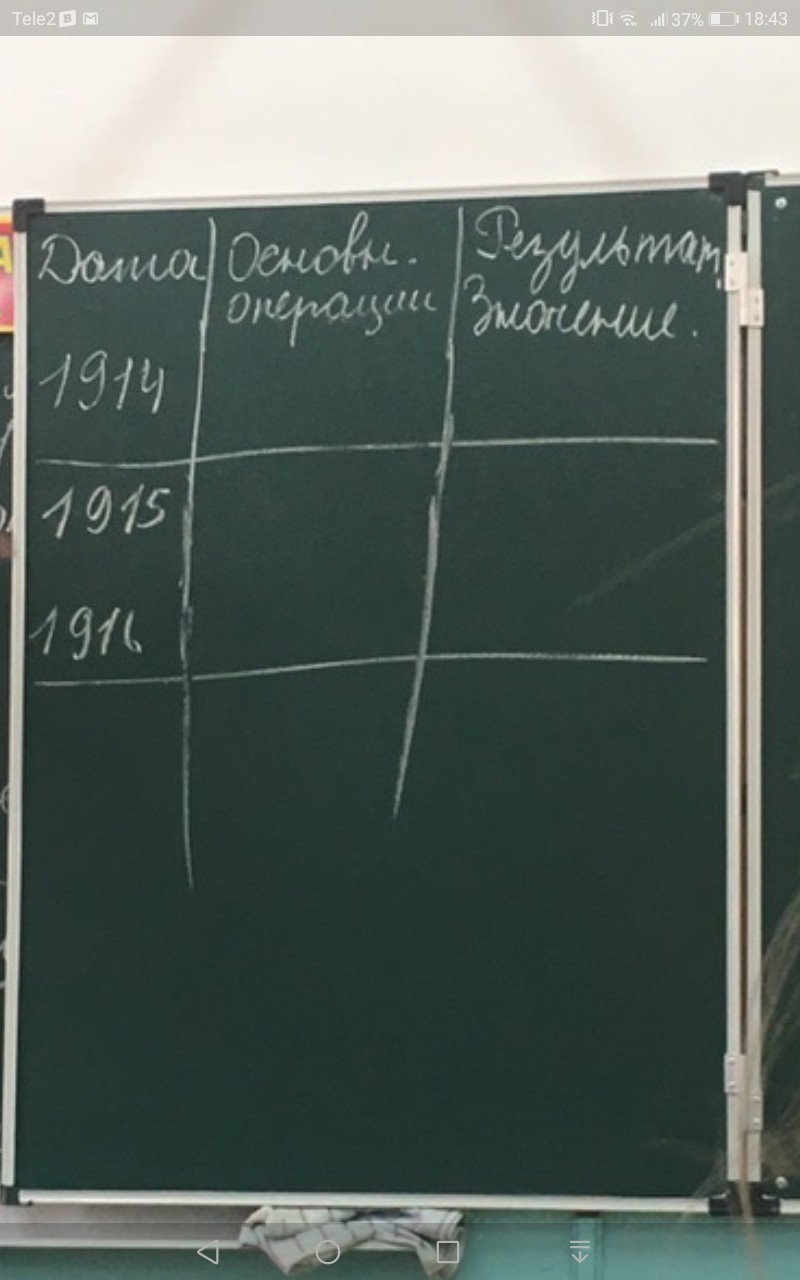 Tele2 37% 18:43
Дата Основн. Результат,
операции Значение.
1914
1915
1916